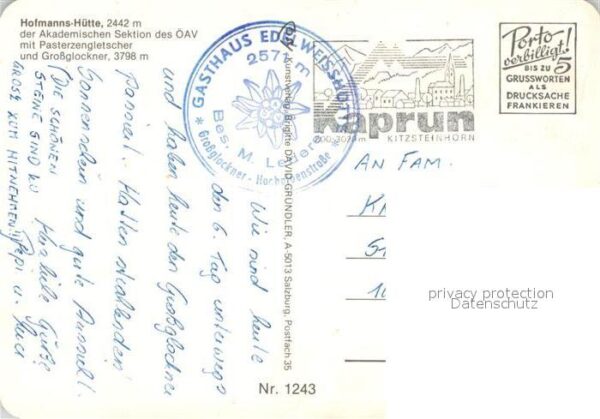 Hofmanns-Hütte, 2442 m
der Akademischen Sektion des ÖAV
mit Pasterzengletscher
und Großglockner, 3798 m
GASTHAUS EDELWEISSHÜTTE
2571 m
Bes. M. Lederer
Großglockner-Hochalpenstraße
Kaprun
KITZSTEINHORN
Porto-
verbilligt!
BIS ZU 5
GRUSSWORTEN
ALS
DRUCKSACHE
FRANKIEREN
Kunstverlag Brigitte DAVID-GRÜNDLER, A-5013 Salzburg, Postfach 35
Wir sind heute
den 6. Tag unterwegs
und haben heute den Großglockner
passiert. Hatten strahlenden
Sonnenschein und gute Aussicht.
(DIE SCHÖNEN
STEINE SIND ZU
GROSZ ZUM MITNEHMEN!)
Herzliche Grüße
Pepi u.
AN FAM.
privacy protection
Datenschutz
Nr. 1243